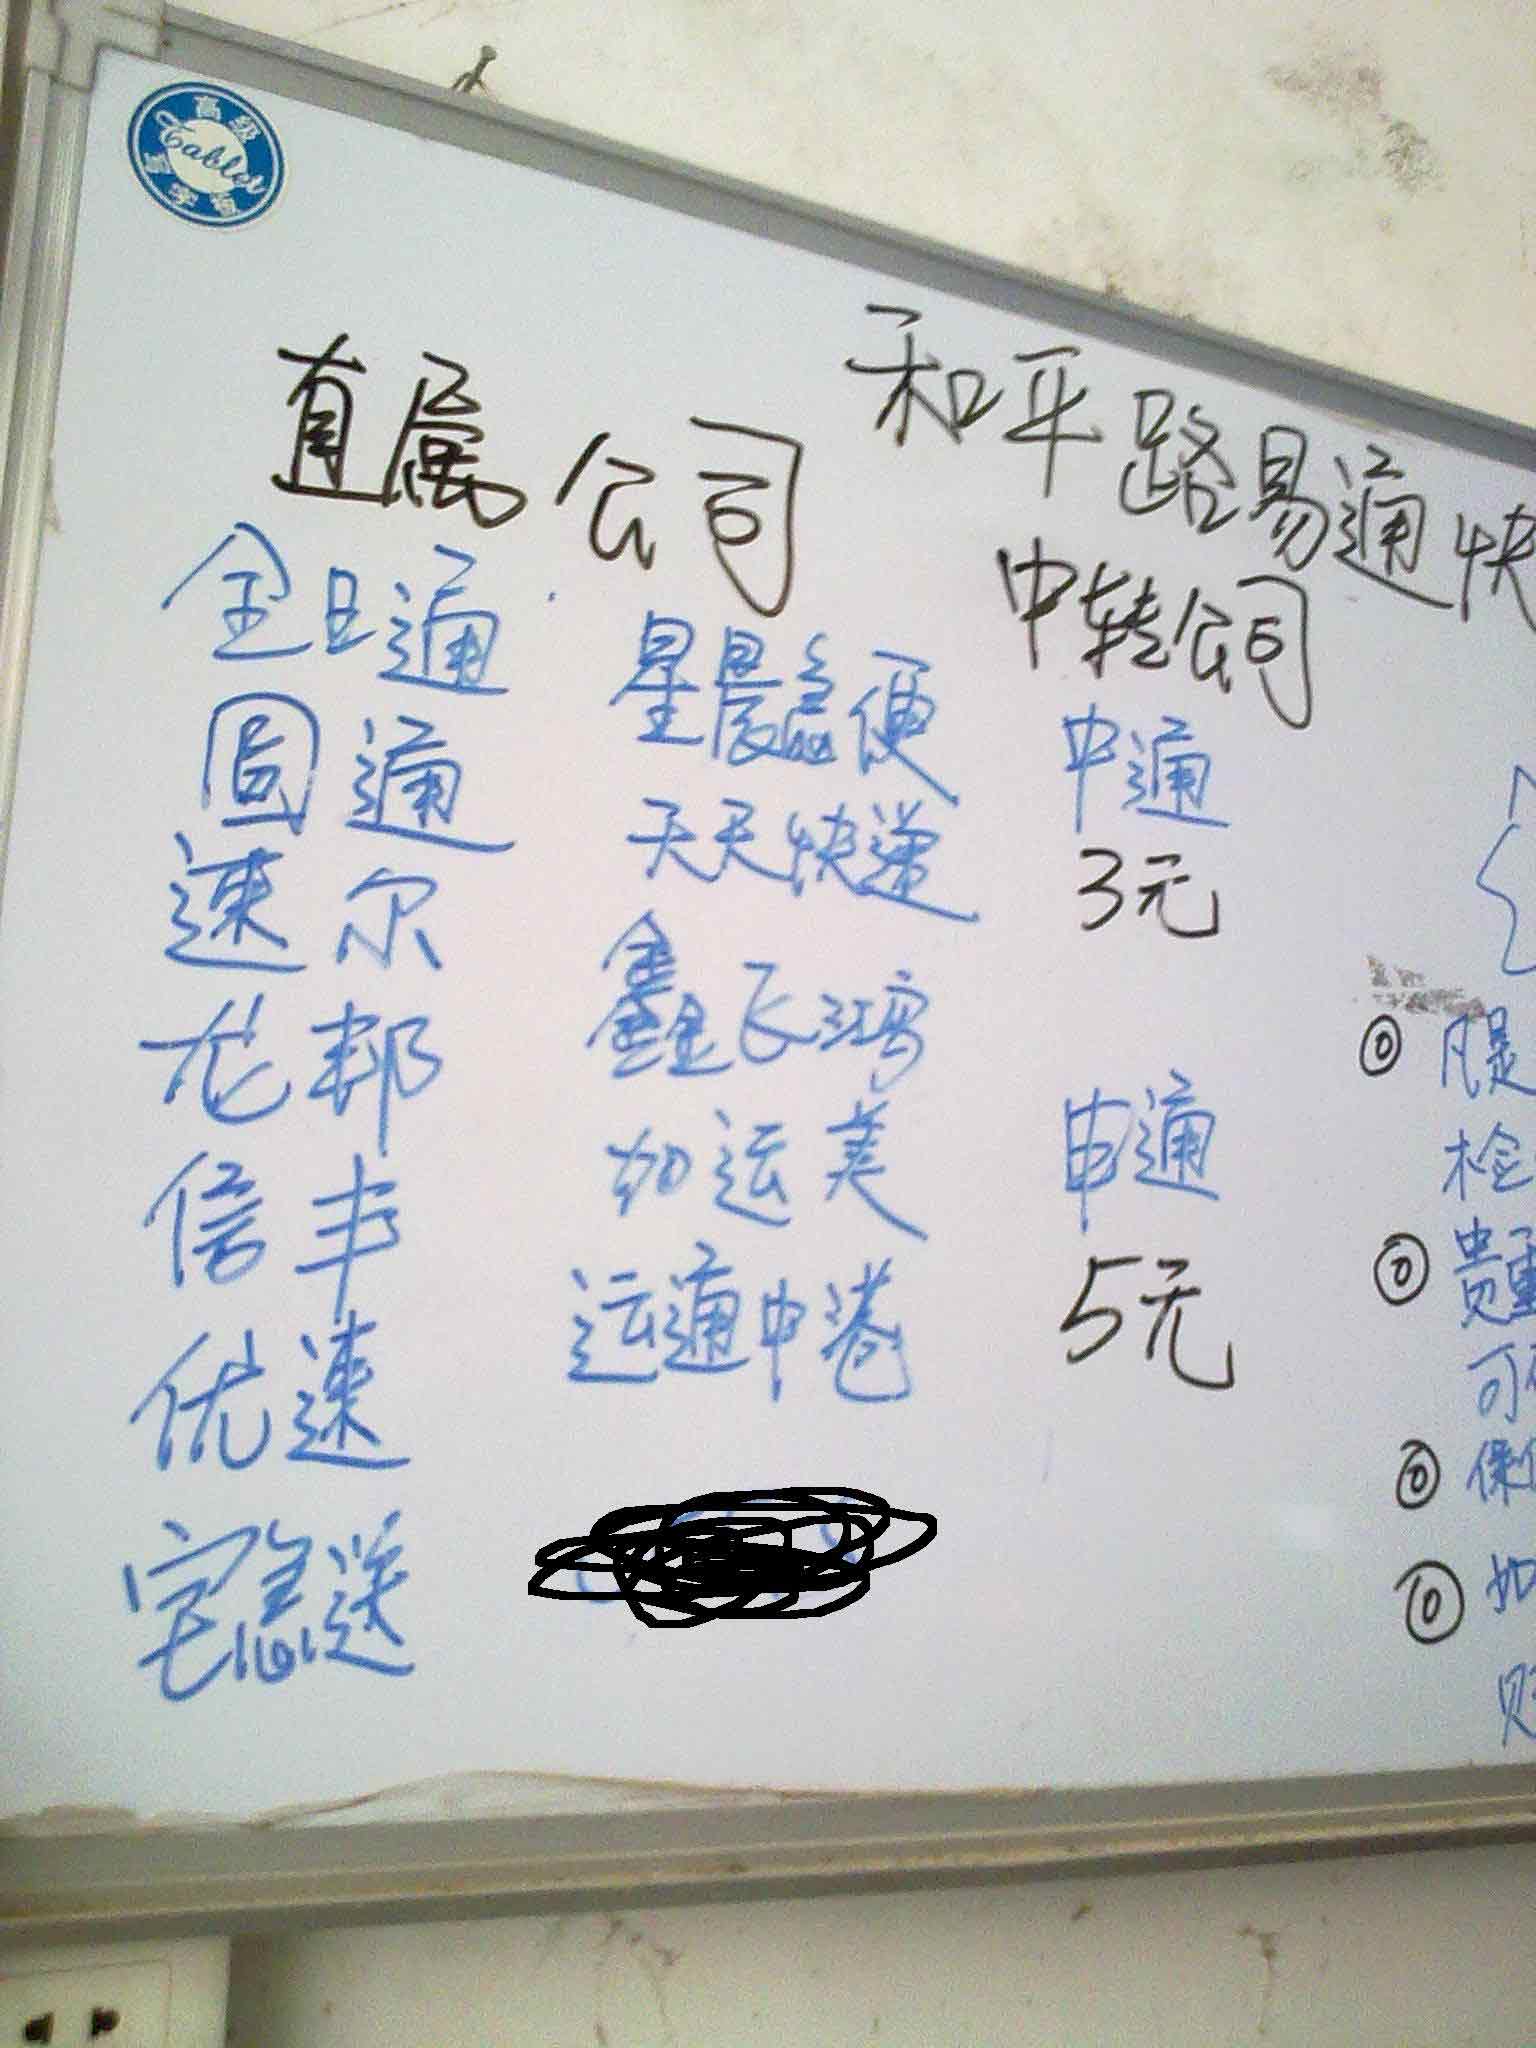 高级
Tablet
和平路易通快
直属公司
中转公司
全日通
圆通
速尔
龙邦
信丰
优速
宅急送
星晨急便
天天快递
鑫飞鸿
加运美
运通中港
中通
3元
申通
5元
凡是
检
贵重
可
保
如